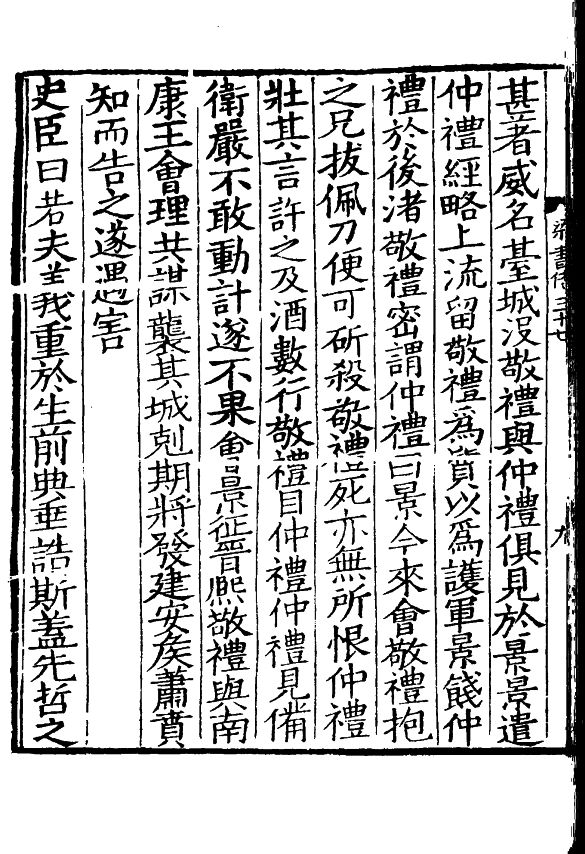 甚著威名臺城沒敬禮與仲禮俱見於景景遣
仲禮經略上流留敬禮爲質以爲護軍景餞仲
禮於後渚敬禮密謂仲禮曰景今來會敬禮抱
之兄拔佩刀便可斫殺敬禮死亦無所恨仲禮
壯其言許之及酒數行敬禮目仲禮仲禮見備
衛嚴不敢動計遂不果會景征晉熙敬禮與南
康王會理共謀襲其城剋期將發建安侯蕭賁
知而告之遂遇害
史臣曰若夫義重於生前典垂誥斯蓋先哲之
梁書傳三十七
九